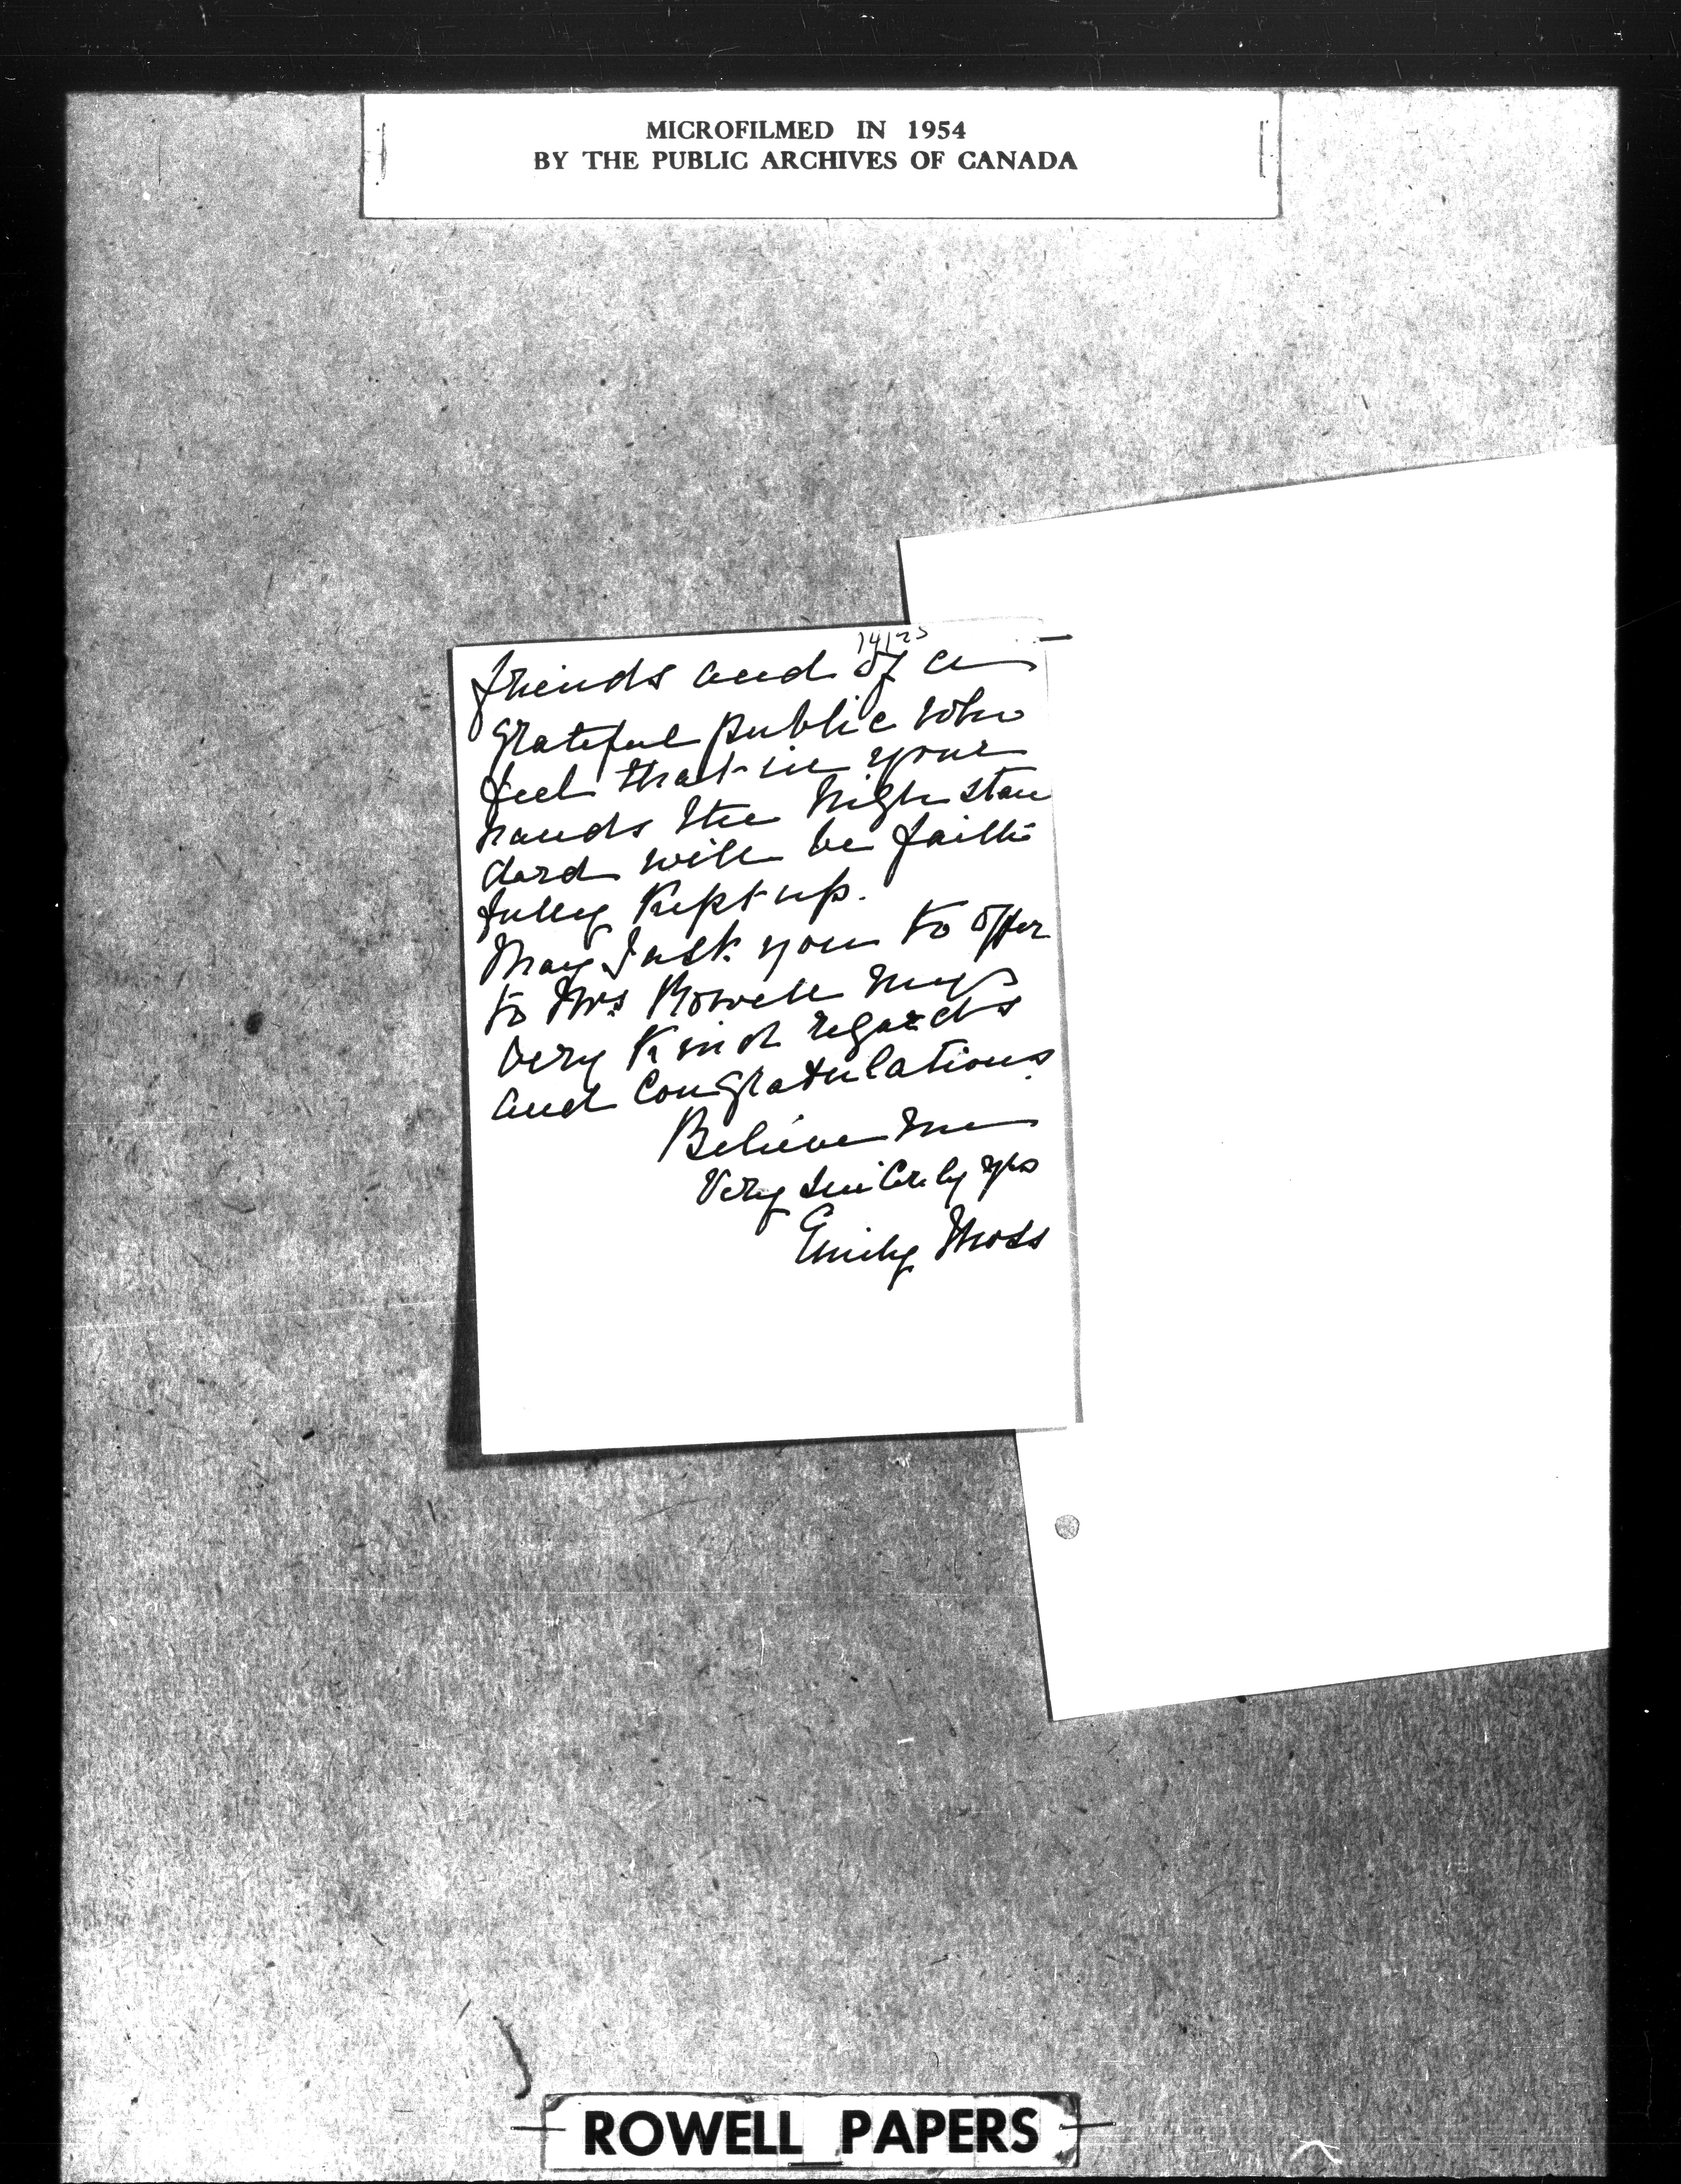 MICROFILMED IN 1954
BY THE PUBLIC ARCHIVES OF CANADA
14125
friends and of a
grateful public who
feel that in your
hands the high stan
dard will be faith
fully kept up.
May I ask you to offer
to Mrs Rowell my
very kind regards
and congratulations.
Believe me
Very sincerely yrs
Emily Moss
ROWELL PAPERS